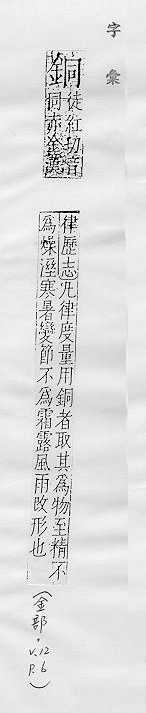 字彙
銅
徒紅切音
同赤金漢
律歷志凡律度量用銅者取其為物至精不
為燥溼寒暑變節不為霜露風雨改形也
(金部, v.12
P.6)